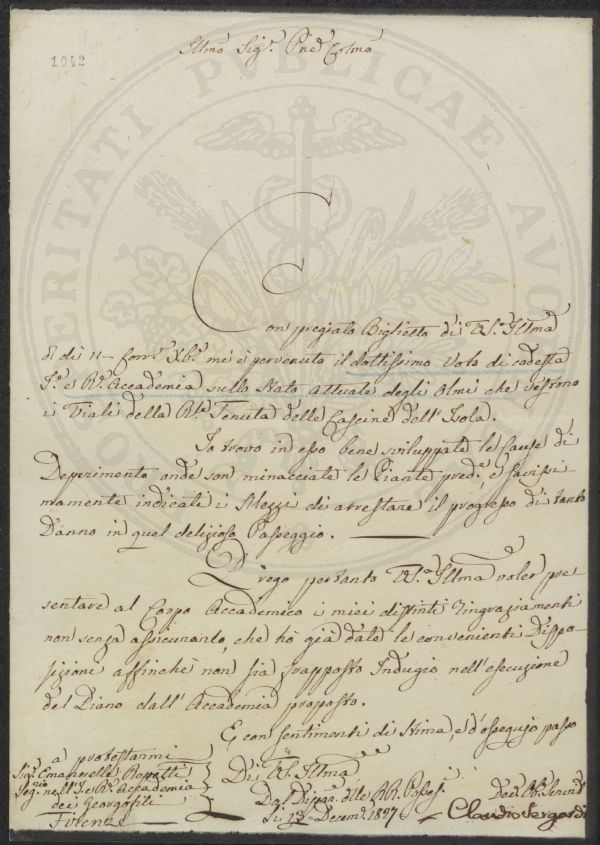 1042
Illmo Sig.e Pne Colmo
Con pregiato Biglietto di VS. Illma
di dì 11 Corr.e Xbr.e mi è pervenuto il dottissimo Voto di codesta
I. e R. Accademia sullo Stato attuale degli Olmi che vestono
i Viali della Rle Tenuta delle Cascine dell'Isola.
Io trovo in esso bene sviluppate le Cause di
Deperimento onde son minacciate le Piante pred.e, e savissi-
mamente indicati i Mezzi di arrestare il progresso di tanto
Danno in quel delizioso Passeggio.
Prego pertanto VS. Illma voler pre
sentare al Corpo Accademico i miei distinti ringraziamenti
non senza assicurarlo, che ho già date le convenienti Dispo-
sizioni affinchè non sia frapposto Indugio nell'esecuzione
del Piano dall'Accademia proposto.
E con sentimenti di stima, e d'ossequio passo
a protestarmi
Di VS. Illma
Sig.e Emanuelle Repetti
Seg.rio nell'I. e R. Accademia
dei Georgofili
Firenze
Da Dipar. delle RR. Posses.i
Li 13 Decem. 1827
Claudio Sergardi
VERITATI PVBLICAE